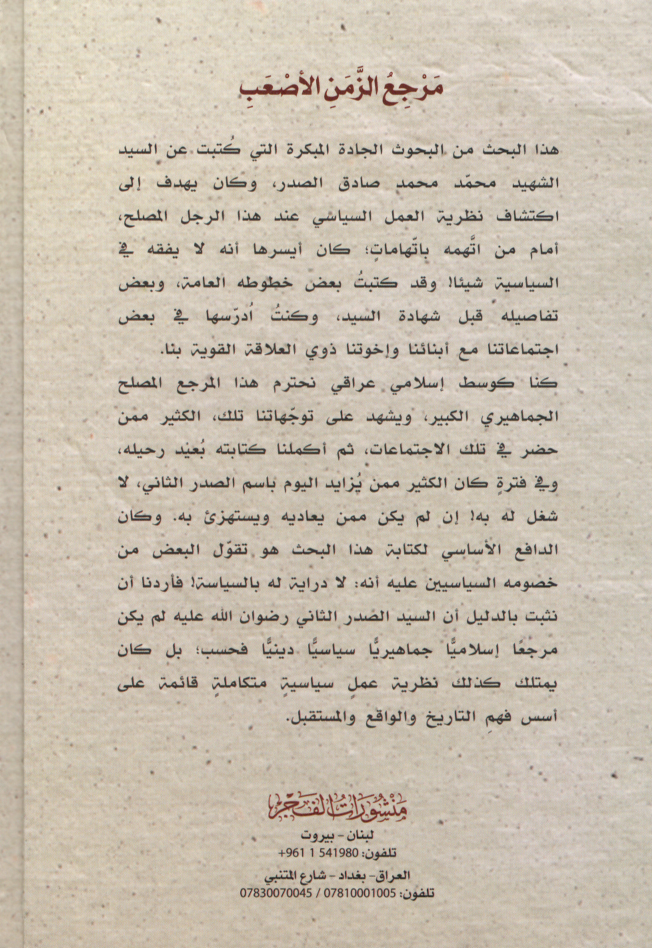 مَرْجِعُ الزَّمَنِ الأصْعَبِ
هذا البحث من البحوث الجادة المبكرة التي كُتبت عن السيد
الشهيد محمّد محمد صادق الصدر، وكان يهدف إلى
اكتشاف نظرية العمل السياسي عند هذا الرجل المصلح،
أمام من اتَّهمه باتّهاماتٍ؛ كان أيسرها أنه لا يفقه في
السياسية شيئا! وقد كتبتُ بعض خطوطه العامة، وبعض
تفاصيله قبل شهادة السيد، وكنتُ اُدرّسها في بعض
اجتماعاتنا مع أبنائنا وإخوتنا ذوي العلاقة القوية بنا.
كنا كوسط إسلامي عراقي نحترم هذا المرجع المصلح
الجماهيري الكبير، ويشهد على توجّهاتنا تلك، الكثير ممن
حضر في تلك الاجتماعات، ثم أكملنا كتابته بُعيْد رحيله،
وفي فترةٍ كان الكثير ممن يُزايد اليوم باسم الصدر الثاني، لا
شغل له به! إن لم يكن ممن يعاديه ويستهزئ به. وكان
الدافع الأساسي لكتابة هذا البحث هو تقوّل البعض من
خصومه السياسيين عليه أنه: لا دراية له بالسياسة! فأردنا أن
نثبت بالدليل أن السيد الصدر الثاني رضوان الله عليه لم يكن
مرجعًا إسلاميًّا جماهيريًّا سياسيًّا دينيًّا فحسب؛ بل كان
يمتلك كذلك نظرية عملٍ سياسيةٍ متكاملةٍ قائمة على
أسس فهمِ التاريخ والواقع والمستقبل.
منشورات الفجر
لبنان - بيروت
تلفون: 541980 1 961+
العراق- بغداد - شارع المتنبي
تلفون: 07810001005 / 07830070045